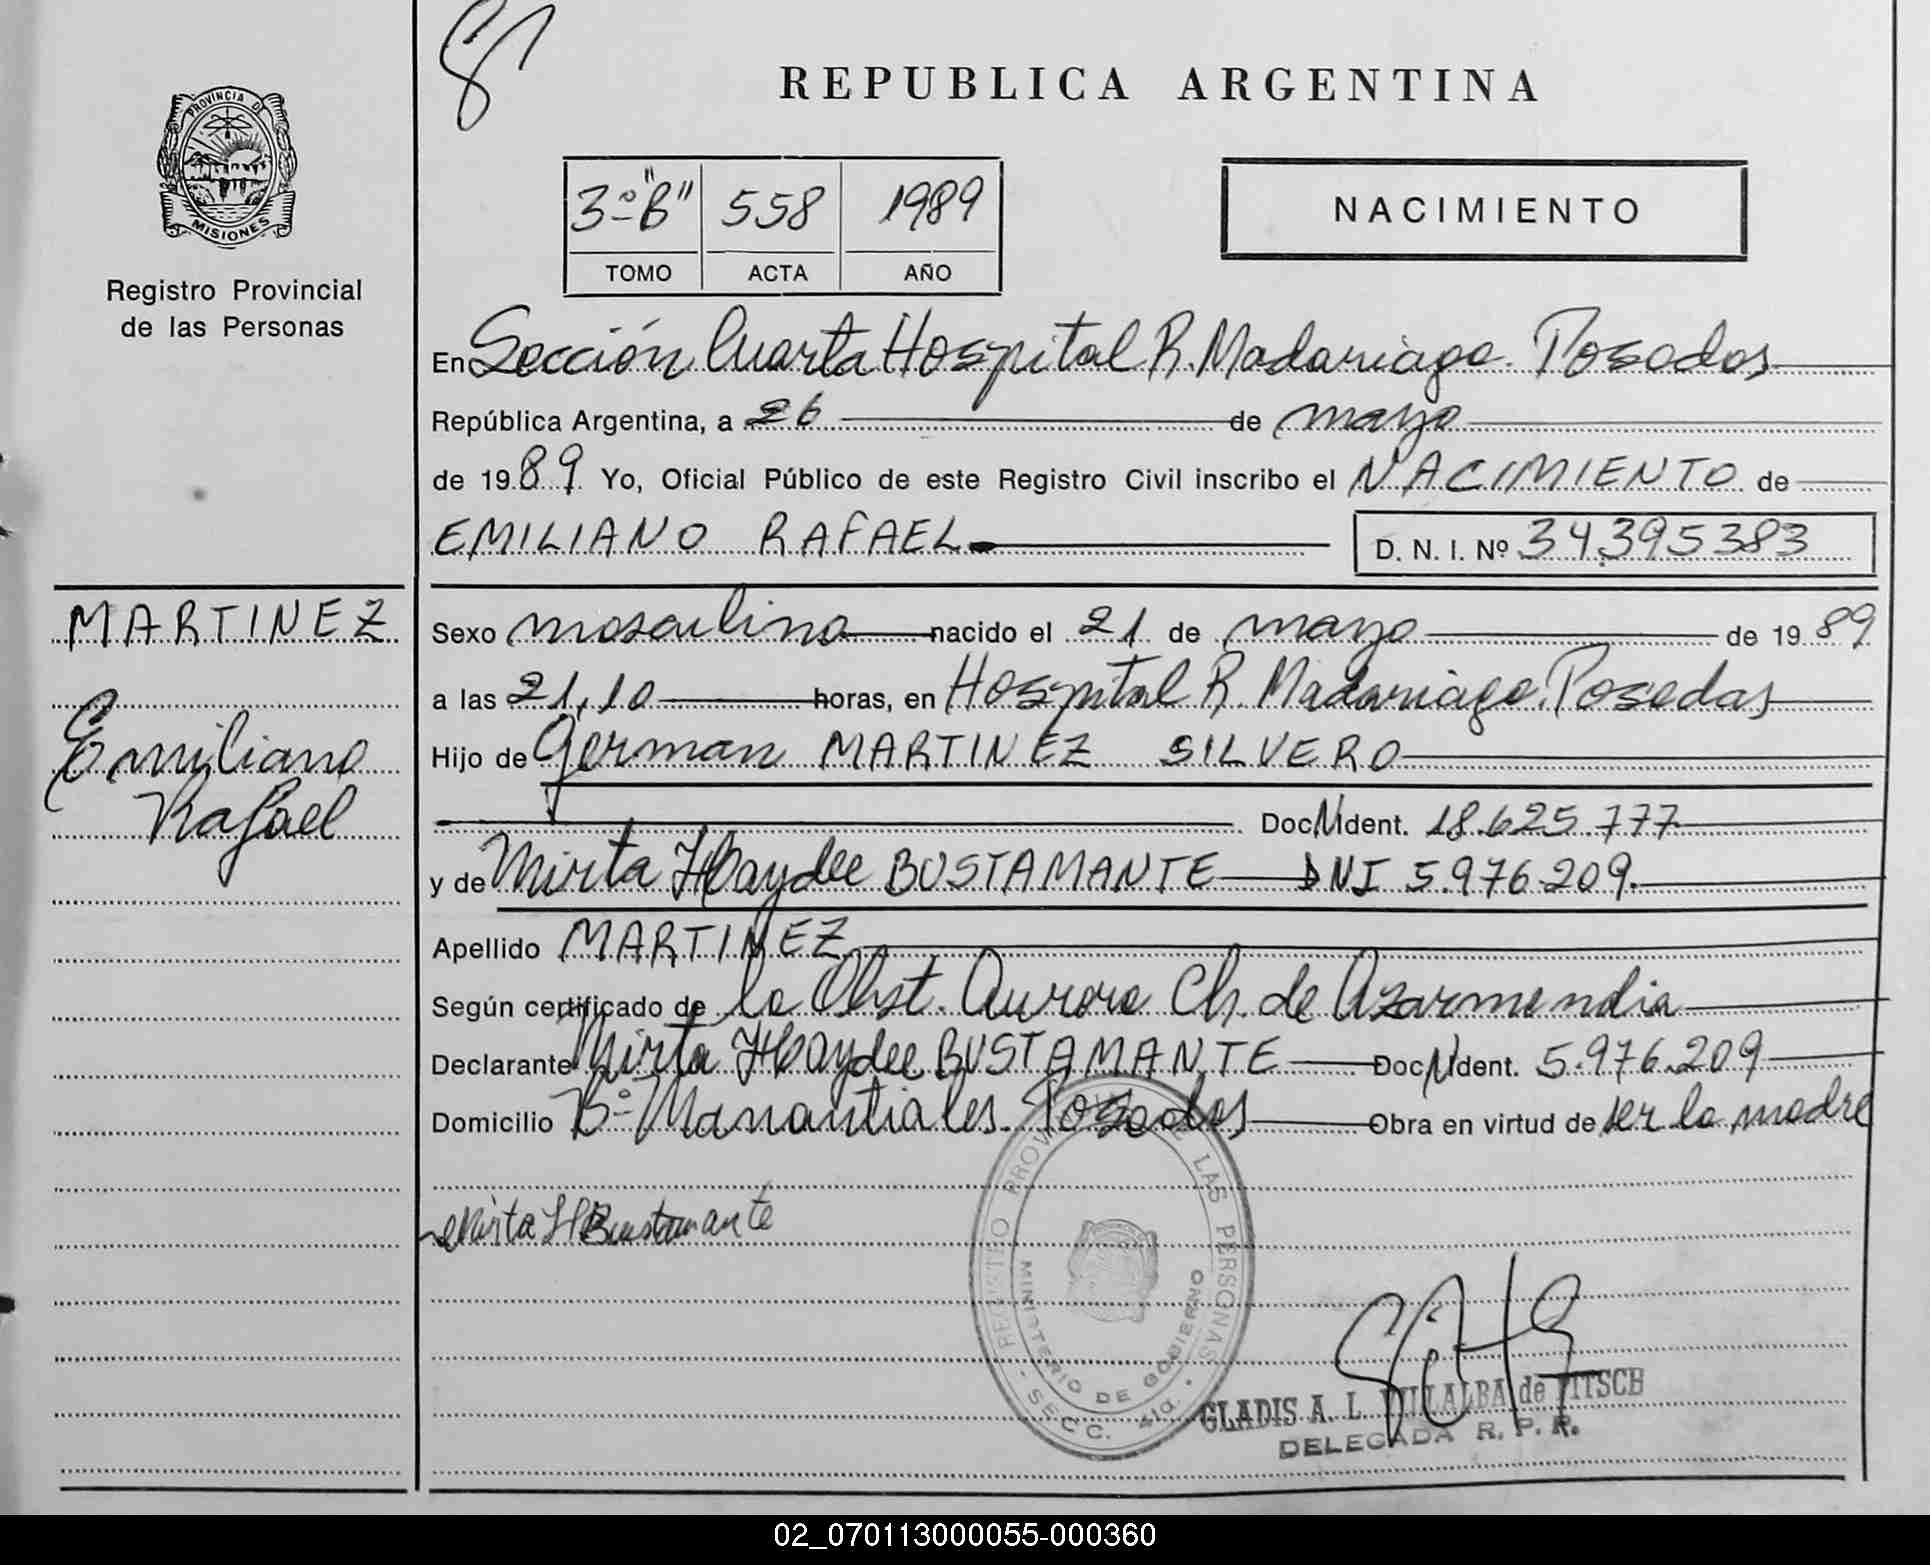 REPUBLICA ARGENTINA
PROVINCIA DE
MISIONES
Registro Provincial
de las Personas
3º "B" 558 1989
TOMO ACTA AÑO
NACIMIENTO
En Sección Cuarta Hospital R. Madariaga. Posadas
República Argentina, a 26 de mayo
de 1989 Yo, Oficial Público de este Registro Civil inscribo el NACIMIENTO de
EMILIANO RAFAEL. D. N. I. Nº 34.395383
MARTINEZ
Emiliano
Rafael
Sexo masculino nacido el 21 de mayo de 1989
a las 21,10 horas, en Hospital R. Madariaga. Posadas
Hijo de German MARTINEZ SILVERO
Doc. Nident. 18.625.777
y de Mirta Haydee BUSTAMANTE DNI 5.976.209.
Apellido MARTINEZ
Según certificado de la Obst. Aurora Ch. de Azarmendia
Declarante Mirta Haydee BUSTAMANTE Doc. Nident. 5.976.209
Domicilio Bº Manantiales. Posadas Obra en virtud de ser la madre
Mirta H Bustamante
REGISTRO PROVINCIAL DE LAS PERSONAS
MINISTERIO DE GOBIERNO
- SECC. 4ta. -
GLADIS A. L. VILLALBA de PITSCH
DELEGADA R. P. P.
02_070113000055-000360